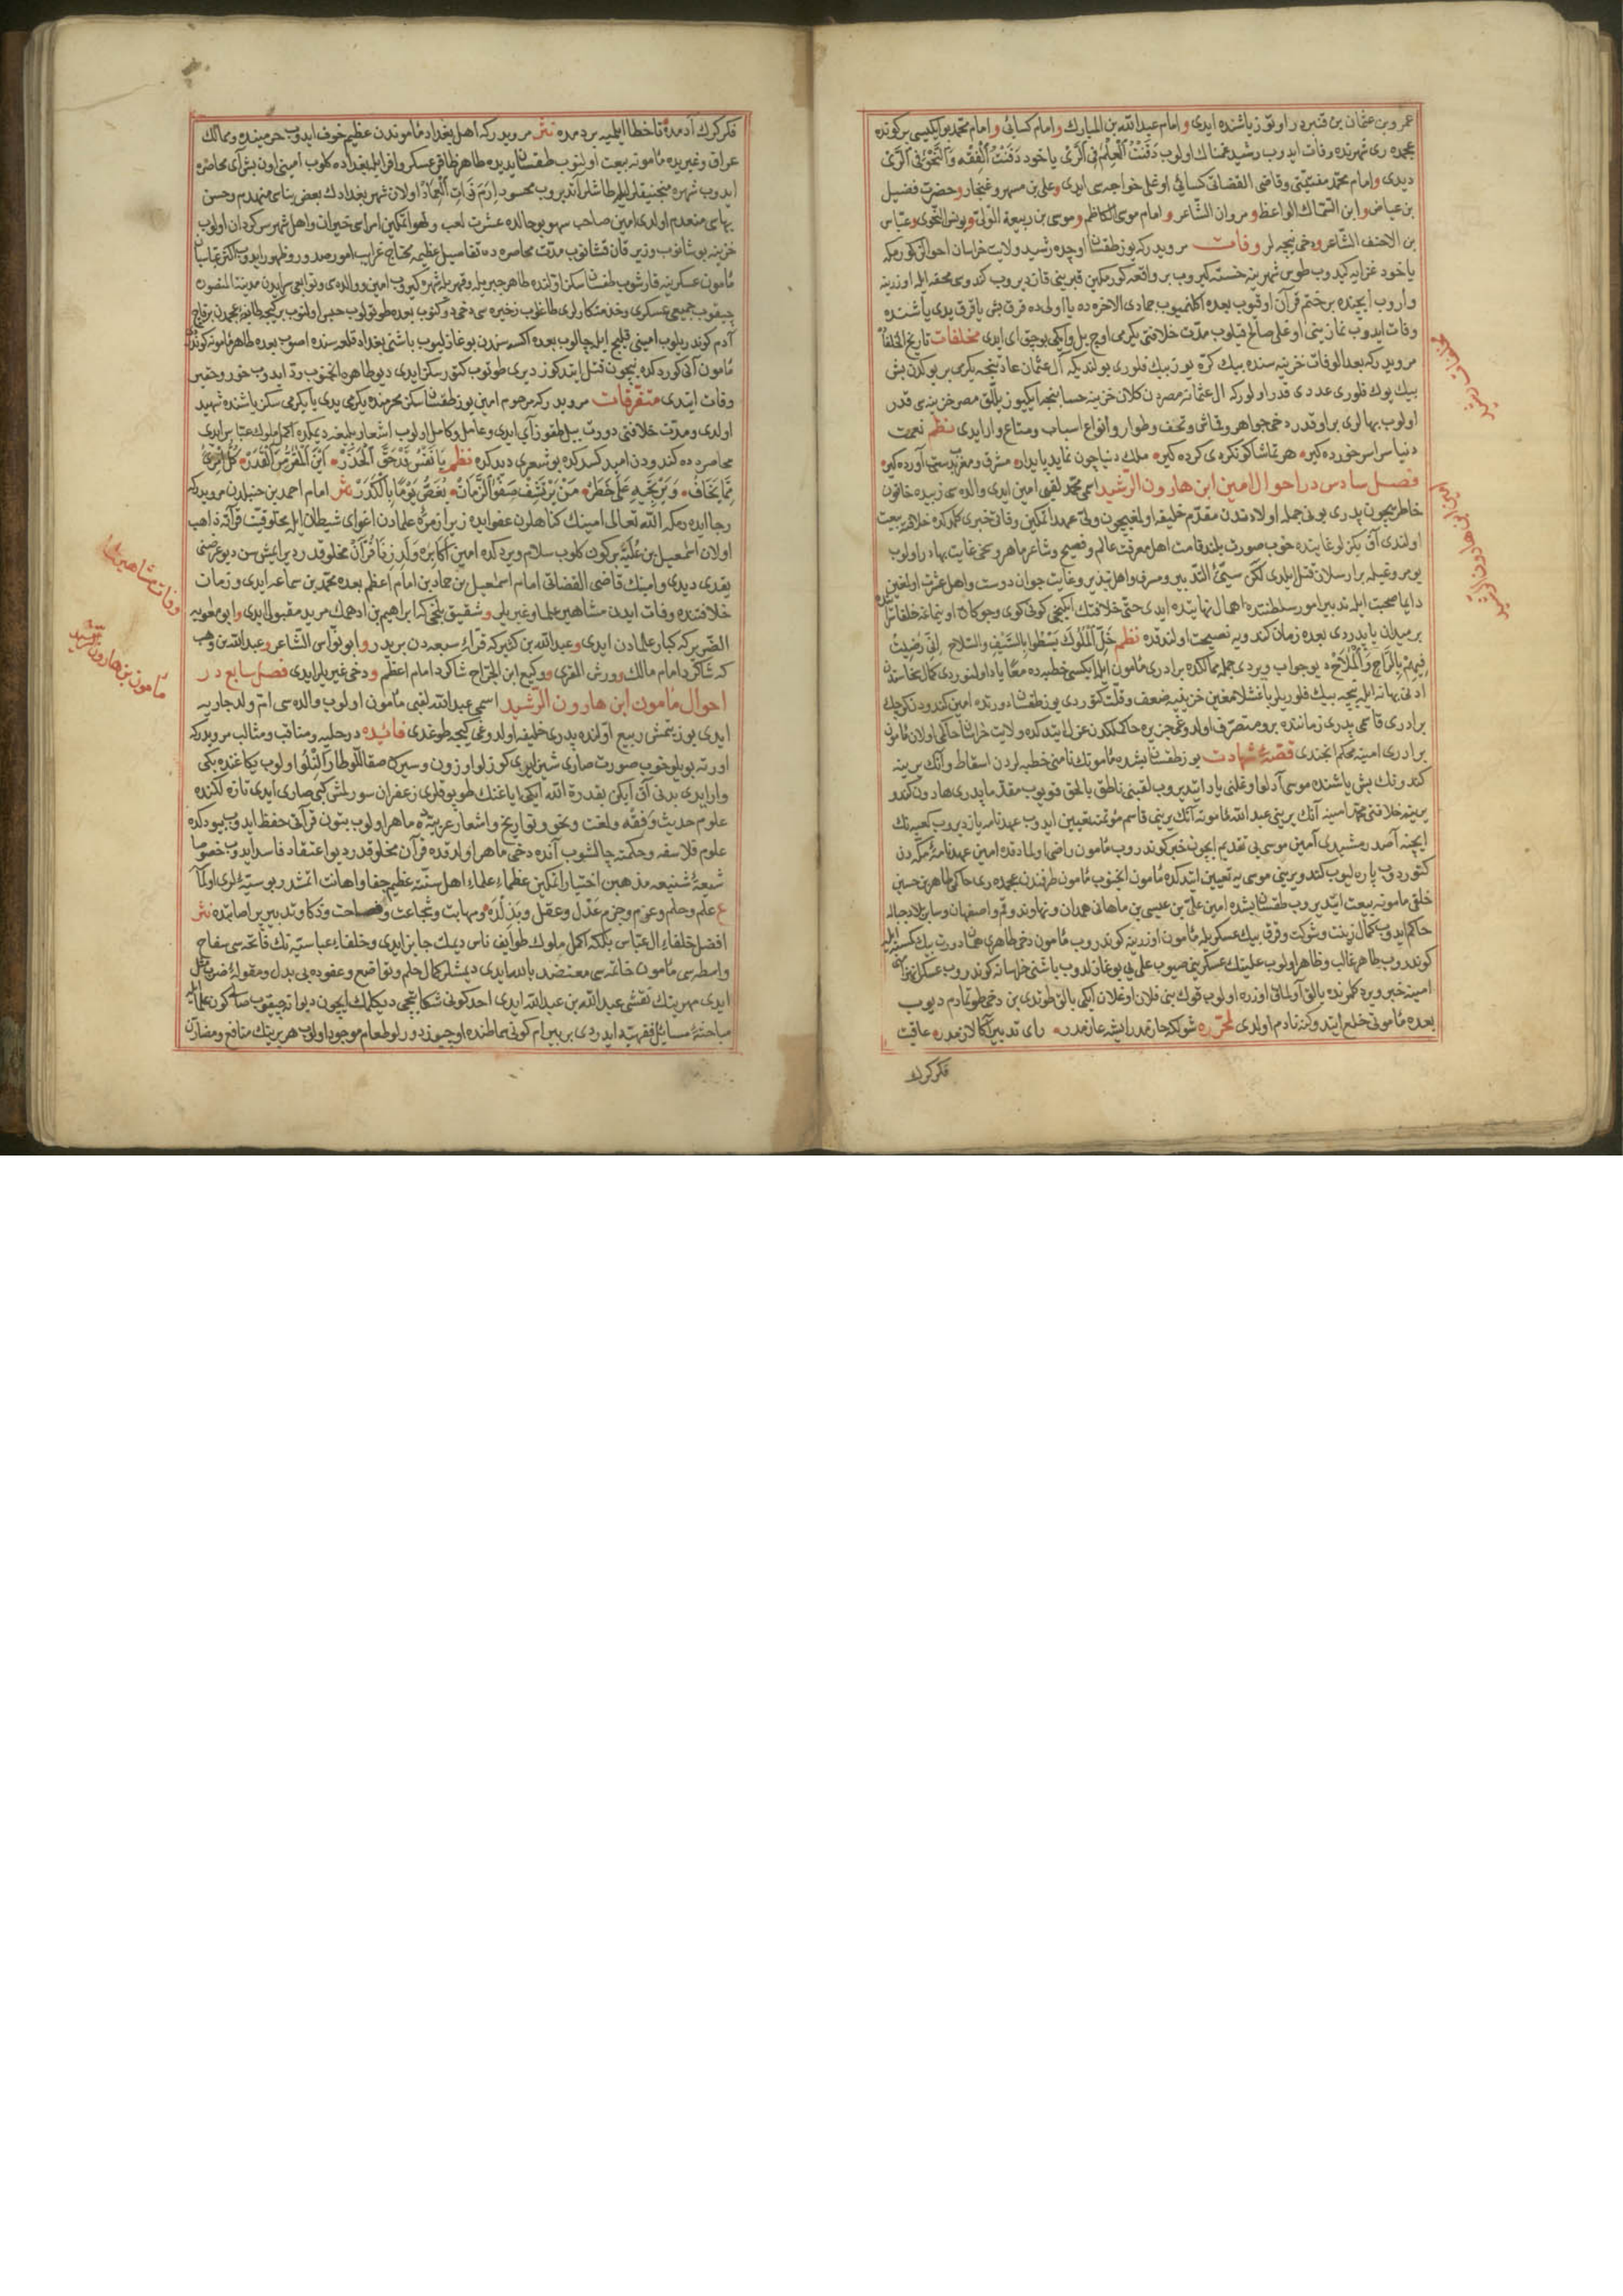 عمرو بن عثمان بن قنبردر اوتوز ياشنده ايدى و امام عبدالله بن المبارك و امام كسائى و امام محمد بو ايكيسى بر كونده
عجمده رى شهرنده وفات ايدوب رشيد غمناك اولوب دَفَنْتُ الْعِلْمَ فِى الرَّىْ ياخود دَفَنْتُ الْفِقْهَ وَالنَّحْوَ فِى الرَّىْ
ديدى و امام محمد مفتيسى وقاضى القضاتى كسائى اوغلى خواجه سى ايدى و على بن مسهر و غنجار و حضرت فضيل
بن عياض و ابن السماك الواعظ و مروان الشاعر و امام موسى الكاظم و موسى بن ربيعة و يونس النحوى و عباس
بن الاحنف الشاعر و دخى نيجه لر وفات مرويدركه يوز طقسان اوچده رشيد ولايت خراسان احوالن كورمكه
ياخود غزايه كيدوب طوس شهرينه خسته كيروب بر واقعه كورمكين قبرينى قازديروب كندوى محفه ايله اوزرينه
واروب ايچنده بر ختم قرآن اوقيوب بعده جمادى الاخره ده
وفات ايدوب نمازينى اوغلى صالح قيلوب مدت خلافتى يكرمى اوچ ييل و ايكى بوچق اى ايدى مخلفات تاريخ الخلفا
مرويدركه بعد الوفات خزينه سنده بيك كره يوز بيك فلورى بولنديكه آل عثمان عادتنجه يكرمى بر يوكدن بش
بيك يوك فلورى عددى قدر اولوركه
اولوب بهالرى بر اوقدر دخى جواهر و قماش و تحف و طوار و انواع اسباب و متاع وار ايدى نظم نعمت
دنيا سراسر خورده كير هر تماشا كو نكردى كرده كير ملك دنيا چون نمايد پايدار مشرق و مغرب بدستى آورده كير
فصل سادس در احوال امين ابن هارون الرشيد اسمى محمد لقبى امين ايدى والده سى زبيده خاتون
خاطريچون پدرى بونى جمله اولادندن مقدم خليفه اولمغيچون ولى عهد اتمكين وفاتى خبرى كلدكده خلافته بيعت
اولندى آق بكزلو غايتده خوب صورت بلند قامت اهل معرفت عالم و فصيح و شاعر ماهر و سخى غايت بهادر اولوب
يومروغيله بر ارسلان قتل ايلدى لكن سيئ التدبير و مسرف و اهل تبذير و غايت جوان دوست و اهل عشرت اولمغين
دايما صحبت ايله تدبير امور سلطنتده اهمال نهايتده ايدى حتى خلافتك ايكنجى كونى كوى و چوكان
بر ميدان ياپدردى بعده زمان كندويه نصيحت اولندقده نظم خَلِّ الْمُلُوكَ يَسْطُوا بِالسَّيْفِ وَالسِّلَاحِ اِنِّى رَضِيتُ
فِيهِمْ بِالرَّاحِ وَالْمِلَاحِ ديو جواب ويردى جمله ممالكده برادرى مأمون ايله ايكيسى خطبه ده معًا ياد اولنوردى
ادنى بهانه ايله نيچه بيك فلوريلر باغشلامغين خزينيه ضعف و قلت كتوردى يوز طقسان دورتده امين كندودن كوچك
برادرى قاسمى پدرى زماننده
برادرى امينه محكم انجندى قصه شهادت يوز طقسان بشده مأمونك نامنى خطبه لردن اسقاط و آنك يرينه
كندونك بش ياشنده موسى آدلو اوغلنى ياد ايتديروب لقبنى ناطق بالحق قويوب مقدما پدرى هارون كندو
يرينه خلافتى محمد امينه آنك يرينى عبدالله مأمونه آنك يرينى قاسم مؤتمنه تعيين ايدوب عهدنامه يازديروب كعبه نك
ايچنه آصدرمشيدى امين موسى يى تقديم ايچون خبر كوندروب مأمون راضى اولمادقده امين عهدنامه مكه دن
كتوردوب پاره ليوب كندو يرينى موسى يه تعيين ايتدكده مأمون انجنوب مأمون طرفندن عجمده رى حاكمى طاهر بن حسين
خلقى مأمونه بيعت ايتديروب طقسان بشده امين على بن عيسى بن ماهانى همدان و نهاوند و قم و اصفهان و ساير بلاد جباله
حاكم ايدوب كمال زينت و شوكت و قرق بيك عسكريله مأمون اوزرينه كوندروب مأمون دخى طاهرى همان دورت بيك كسنه ايله
كوندروب طاهر غالب و ظاهر اولوب علينك عسكرينى صيوب على يى بوغازلدوب باشنى خراسانه كوندروب
امينه خبر ويره كلمرنده بالق آولماق اوزره اولوب قوك بنى فلان اوغلان ايكى بالق طوتدى بن دخى طوتمادم ديوب
بعده مأمونى خلع ايتدوكنه نادم اولدى لمحرره شولكه چار تمدر ايشه عازمدر راى تدبير اكا لازمدر عاقبت
فكر كرك
مخلفات رشيد
امين ابن هارون الرشيد
فكر كرك آدمه تا خطا ايلميه بردمده نثر مرويدركه اهل بغداد مأموندن عظيم خوف ايدوب حرمينده و ممالك
عراق و غيريده مأمونه بيعت اولنوب طقسان يديده طاهر ظافر عسكر وافر ايله بغداده كلوب امينى اون بش آى محاصره
ايدوب شهره منجنيقلر ايله طاشلر آتديروب محسود اِرَمَ ذَاتِ الْعِمَادْ اولان شهر بغدادك بعض بناسى منهدم و حسن
بهاسى منعدم اولدى امين صاحب سهو بو حالده عشرت لعب و لهو اتمكين امراسى حيران و اهل شهر سركردان اولوب
خزينه بوشانوب وزير قان قشانوب مدت محاصره ده تفاصيل عظيمه محتاج غرايب امور صدور و ظهور ايدوب اكثر غالبا
مأمون عسكرينه قارشوب طقسان سكز اولنده طاهر جبريله و قهريله شهره كيروب امين و والده سى و توابعى سرايدن مدينة المنصوره
چيقوب جميعى عسكرى و خدمتكارلرى طاغلوب ذخيره سى دخى دوكنوب بعده طوتولوب حبس اولنوب بر كيجه طايفه عجمدن بر قاچ
آدم كوندريلوب امينى قليچ ايله چالوب بعده اكسه سندن بوغازليوب باشنى بغداد قلعه سنده اصوب بعده طاهر مأمونه كوندردى
مأمون آنى كوردكده نيچون قتل ايتدكوز ديرى طوتوب كتورسكز ايدى ديو طاهره انجنوب رد ايدوب خور و حقير
وفات ايتدى متفرقات مرويدركه مرحوم امين يوز طقسان سكز محرمنده يكرمى يدى يا يكرمى سكز ياشنده شهيد
اولدى و مدت خلافتى دورت ييل طقوز آى ايدى و عامل و كامل اولوب اشعار بليغه ديمكده اكمل ملوك عباس ايدى
محاصره ده كندودن اميد كسدكده بو شعرى ديدكده نظم يَا نَفْسُ قَدْ حَقَّ الْحَذَرْ اَيْنَ الْمَفَرُّ مِنَ الْقَدَرْ كُلُّ امْرِئٍ
مِمَّا يَخَافُ وَ يَرْتَجِيهِ عَلَى خَطَرْ مَنْ يَرْتَشِفْ صَفْوَ الزَّمَانْ يُغَصُّ يَوْمًا بِالْكَدَرْ نثر امام احمد بن حنبلدن مرويدركه
رجا ايده رمكه الله تعالى امينك كناهلرن عفو ايده زيرا زمره علمادن اغواى شيطان ايله مخلوقيت قرآنه ذاهب
اولان اسمعيل بن عُلَيَّة بر كون كلوب سلام ويردكده امين اكابره وَلَدِ زِنَا قُرْآنْ مخلوقدر دير ايمش سن ديو عرضنى
يقدى ديدى و امينك قاضى القضاتى امام اسمعيل بن حماد بن امام اعظم بعده محمد بن سماعه ايدى و زمان
خلافتنده وفات ايدن مشاهير علما و غيريلر و شقيق بلخى كه ابراهيم بن ادهمك مريد مقبولى ايدى و ابو معويه
الضرير كه كبار علمادن ايدى و عبدالله بن كثير كه قراء سبعه دن بريدر و ابو نواس الشاعر و عبدالله بن وهب
كه شاكرد امام مالك و ورش المقرى و وكيع ابن الجراح شاكرد امام اعظم و دخى غيريلر ايدى فصل سابع در
احوال مأمون ابن هارون الرشيد اسمى عبدالله لقبى مأمون اولوب والده سى ام ولد جاريه
ايدى يوز يتمش ربيع اولنده پدرى خليفه اولدوغى كيجه طوغدى فائيده در حليه و مناقب و مثالب مرويدركه
اورته بويلو خوب صورت صارى شين ايرى كوزلو اوزون و سيرك صقاللو اولوب يكاغنده بكى
وار ايدى بدنى آق ايكن بقدرة الله ايكى اياغنك طوبوقلرى زعفران سورلمش كبى صارى ايدى تازه لكنده
علوم حديث و فقه و لغت و نحو و تواريخ و اشعار عربيه ده ماهر اولوب بتون قرآنى حفظ ايدوب بيودكده
علوم فلاسفه و حكمته چالشوب آنده دخى ماهر اولدقده قرآن مخلوقدر ديو اعتقاد فاسد ايدوب خصوصا
شيعه شنيعه مذهبن اختيار اتمكين عظماء علماء اهل سنته عظيم جفا و اهانت اتمشدر بو سيئه لرى اولماسه
ع علم و حلم و عزم و جزم عَدْل و عقل و بَذِلْدَه و مهابت و شجاعت و فصاحت و ذكاوتده بى بر اصابتده نثر
افضل خلفاء آل عباس بلكه اكمل ملوك طوايف ناس ديمك جايز ايدى و خلفاء عباسيه نك فاتحه سى سفاح
واسطه سى مأمون خاتمه سى معتضد بالله ايدى ديمشلر كمال حلم و تواضع و عفوده بى بدل و مقوله ضرب مثل
ايدى مهرينك نقشى عبدالله بن عبدالله ايدى احد كونى شكايتجى ديكلمك ايچون ديوانه چيقوب صالى كون علما ايله
مباحثه مسائل فقهيه ايدردى بر بيرام كونى سماطنده اوچيوز دورلو طعام موجود اولوب هر برينك منافع و مضارن
وفات مشاهير علما
مأمون بن هارون الرشيد